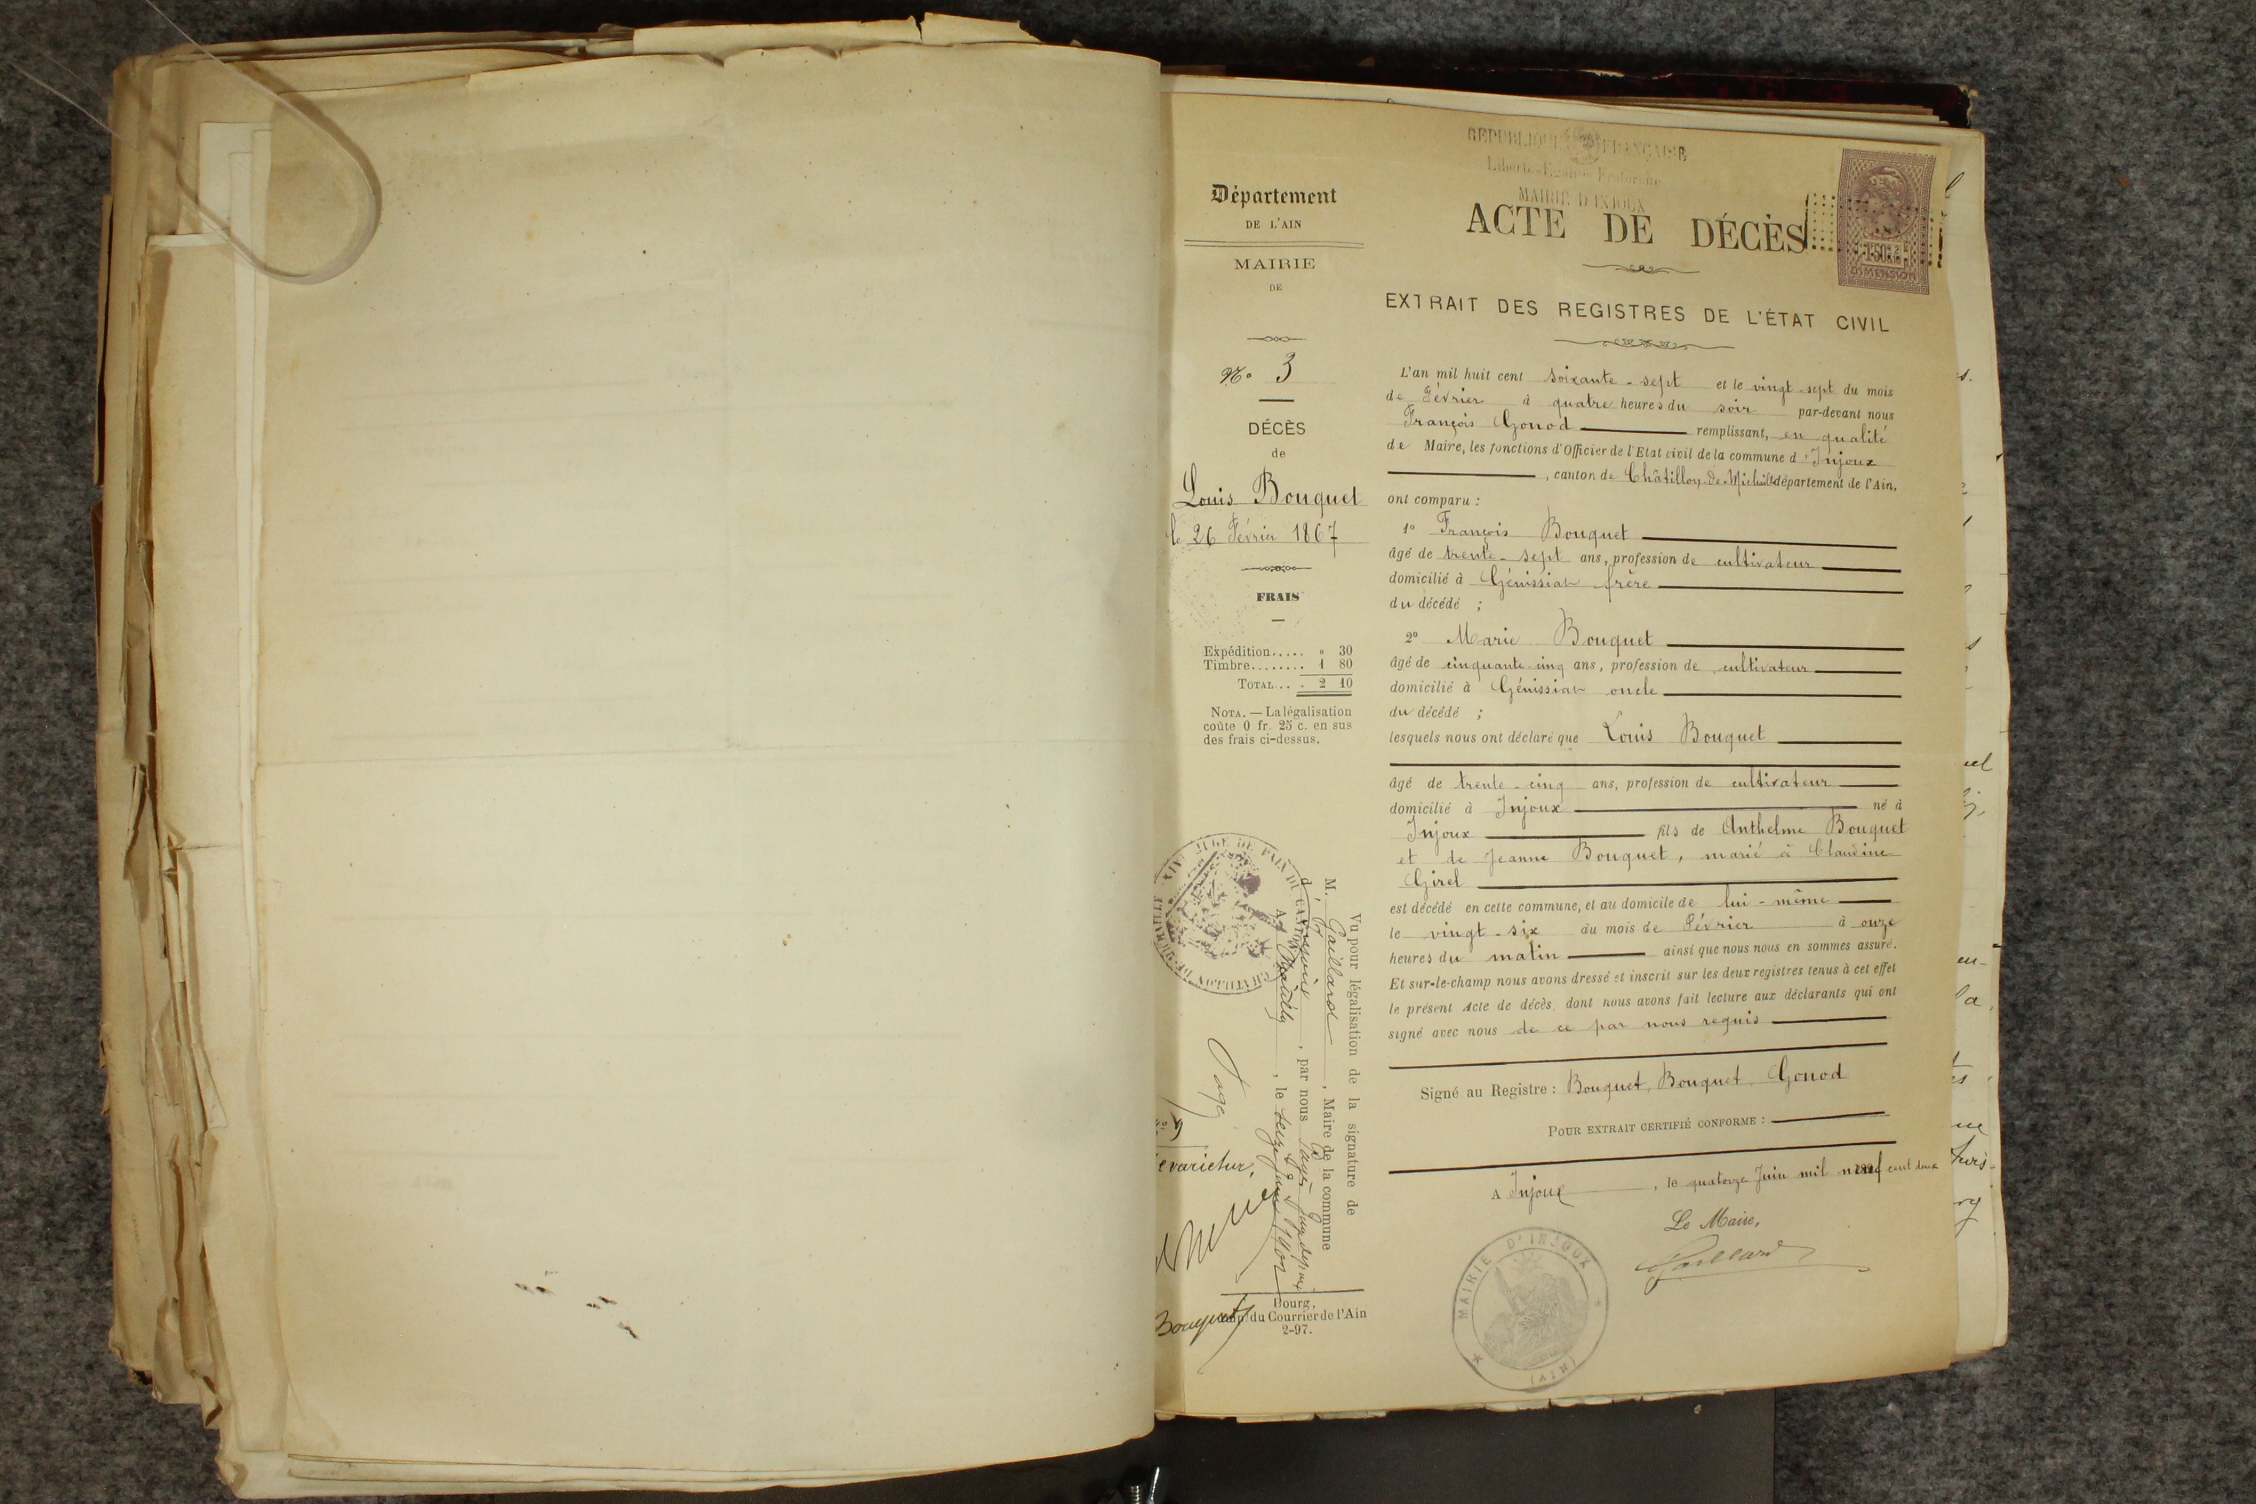 Département
DE L'AIN
MAIRIE
DE
No 3
DÉCÈS
de
Louis Bouquet
le 26 Février 1867
FRAIS
Expédition..... " 30
Timbre........ 1 80
TOTAL... . 2 10
NOTA. — La légalisation
coûte 0 fr. 25 c. en sus
des frais ci-dessus.
Vu pour légalisation de la signature de
M. Gaillard, Maire de la commune
d'Injoux, par nous
A Châtillon, le seize juin 1902
evarietur,
Bouquet
Bourg,
imp. du Courrier de l'Ain
2-97.
REPUBLIQUE FRANÇAISE
Liberté-Egalité-Fraternité
MAIRIE D'INJOUX
ACTE DE DÉCÈS
1.50
DIMENSION
EXTRAIT DES REGISTRES DE L'ÉTAT CIVIL
L'an mil huit cent soixante-sept et le vingt-sept du mois
de Février à quatre heures du soir par-devant nous
François Gonod remplissant, en qualité
de Maire, les fonctions d'Officier de l'Etat civil de la commune d'Injoux
, canton de Châtillon-de-Michaille département de l'Ain,
ont comparu :
1º François Bouquet
âgé de trente-sept ans, profession de cultivateur
domicilié à Génissiat frère
du décédé ;
2º Marie Bouquet
âgé de cinquante-cinq ans, profession de cultivateur
domicilié à Génissiat oncle
du décédé ;
lesquels nous ont déclaré que Louis Bouquet
âgé de trente-cinq ans, profession de cultivateur
domicilié à Injoux né à
Injoux fils de Anthelme Bouquet
et de Jeanne Bouquet, marié à Claudine
Girel
est décédé en cette commune, et au domicile de lui-même
le vingt-six du mois de Février à onze
heures du matin ainsi que nous nous en sommes assuré.
Et sur-le-champ nous avons dressé et inscrit sur les deux registres tenus à cet effet
le présent Acte de décès, dont nous avons fait lecture aux déclarants qui ont
signé avec nous de ce par nous requis
Signé au Registre : Bouquet, Bouquet Gonod
POUR EXTRAIT CERTIFIÉ CONFORME :
A Injoux, le quatorze Juin mil neuf cent deux
Le Maire,
Gaillard
MAIRIE D'INJOUX
(AIN)